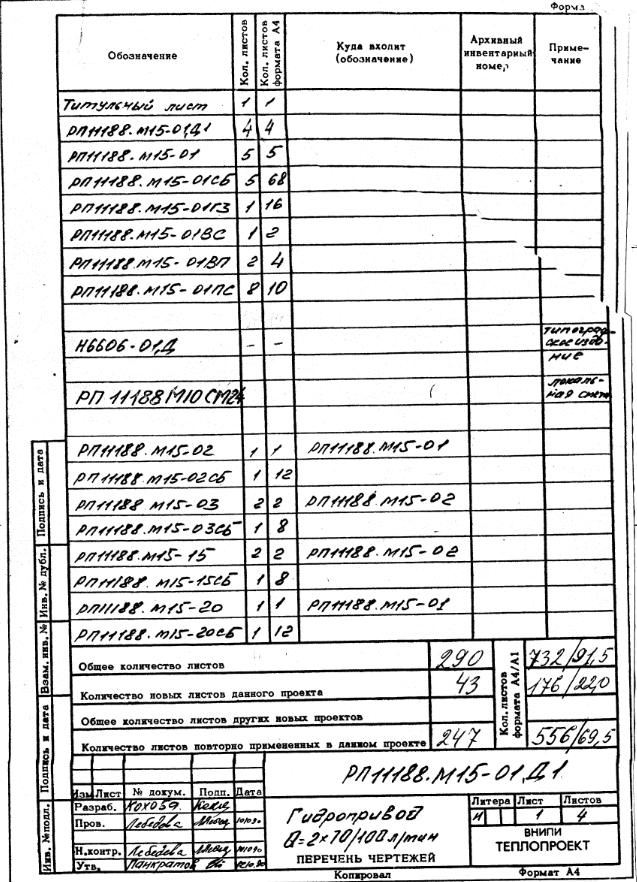 Форма
Обозначение | Кол. листов | Кол. листов формата А4 | Куда входит (обозначение) | Архивный инвентарный номер | Примечание
Титульный лист 1 1
РП11188.М15-01Д1 4 4
РП11188.М15-01 5 5
РП11188.М15-01СБ 5 68
РП11188.М15-01Г3 1 16
РП11188.М15-01ВС 1 2
РП11188.М15-01ВП 2 4
РП11188.М15-01ПС 8 10
Н6606-01Д - - типоград-
ское изда-
ние
РП 11188М10СМ24 локаль-
ная смета
РП11188.М15-02 1 1 РП11188.М15-01
РП11188.М15-02СБ 1 12
РП11188.М15-03 2 2 РП11188.М15-02
РП11188.М15-03СБ 1 8
РП11188.М15-15 2 2 РП11188.М15-02
РП11188.М15-15СБ 1 8
РП11188.М15-20 1 1 РП11188.М15-01
РП11188.М15-20СБ 1 12
Общее количество листов 290 Кол. листов формата А4/А1 732/91,5
Количество новых листов данного проекта 43 176/22,0
Общее количество листов других новых проектов
Количество листов повторно примененных в данном проекте 247 556/69,5
Подпись и дата
Инв. № дубл.
Взам. инв. №
Подпись и дата
Инв. № подл.
РП11188.М15-01Д1
Изм Лист № докум. Подп. Дата
Разраб.
Пров. Лебедова
Н.контр. Лебедова
Утв. Панкратов
Гидропривод
Q=2×70/100 л/мин
ПЕРЕЧЕНЬ ЧЕРТЕЖЕЙ
Литера Лист Листов
И 1 4
ВНИПИ
ТЕПЛОПРОЕКТ
Копировал Формат А4